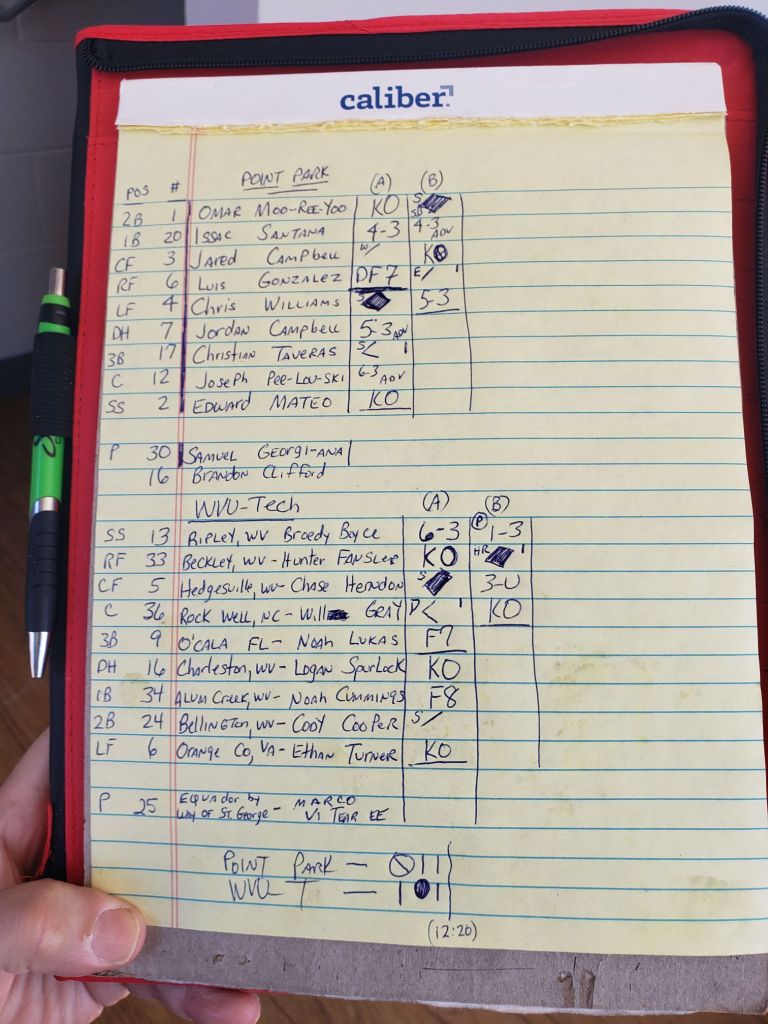 caliber
POINT PARK (A) (B)
POS #
2B 1 OMAR MOO-REE-YOO KO S SB
1B 20 ISSAC SANTANA 4-3 4-3 ADV
CF 3 Jared CAMPbell W/ KO
RF 6 LUIS GONZALEZ DF7 E/ 1
LF 4 Chris WILLIAMS S 5-3
DH 7 Jordan CAMPbell 5-3 ADV
3B 17 Christian TAVERAS S< 1
C 12 Joseph PEE-LOU-SKI 6-3 ADV
SS 2 EDWARD MATEO KO
P 30 SAMUEL GEORGI-ANA
16 BRANDON Clifford
WVU-Tech (A) (B)
SS 13 RIPLEY, WV Broedy Boyce 6-3 P 1-3
RF 33 Beckley, WV - Hunter FANSLER KO HR 1
CF 5 Hedgesville, WV - Chase Herndon S 3-U
C 36 Rock Well, NC - Will GRAY D< 1 KO
3B 9 O'CALA FL - NOAH LUKAS F7
DH 16 Charleston, WV - LOGAN SPURLOCK KO
1B 34 ALUM Creek, WV - NOAH CUMMINGS F8
2B 24 Bellington, WV - COOY COOPER S/
LF 6 ORANGE Co, VA - EthAN TURNER KO
P 25 EQUAdor by
WAY OF ST. George - MARCO
VI TEAR EE
POINT PARK - 0 1 1
WVU T - 1 0 1
(12:20)